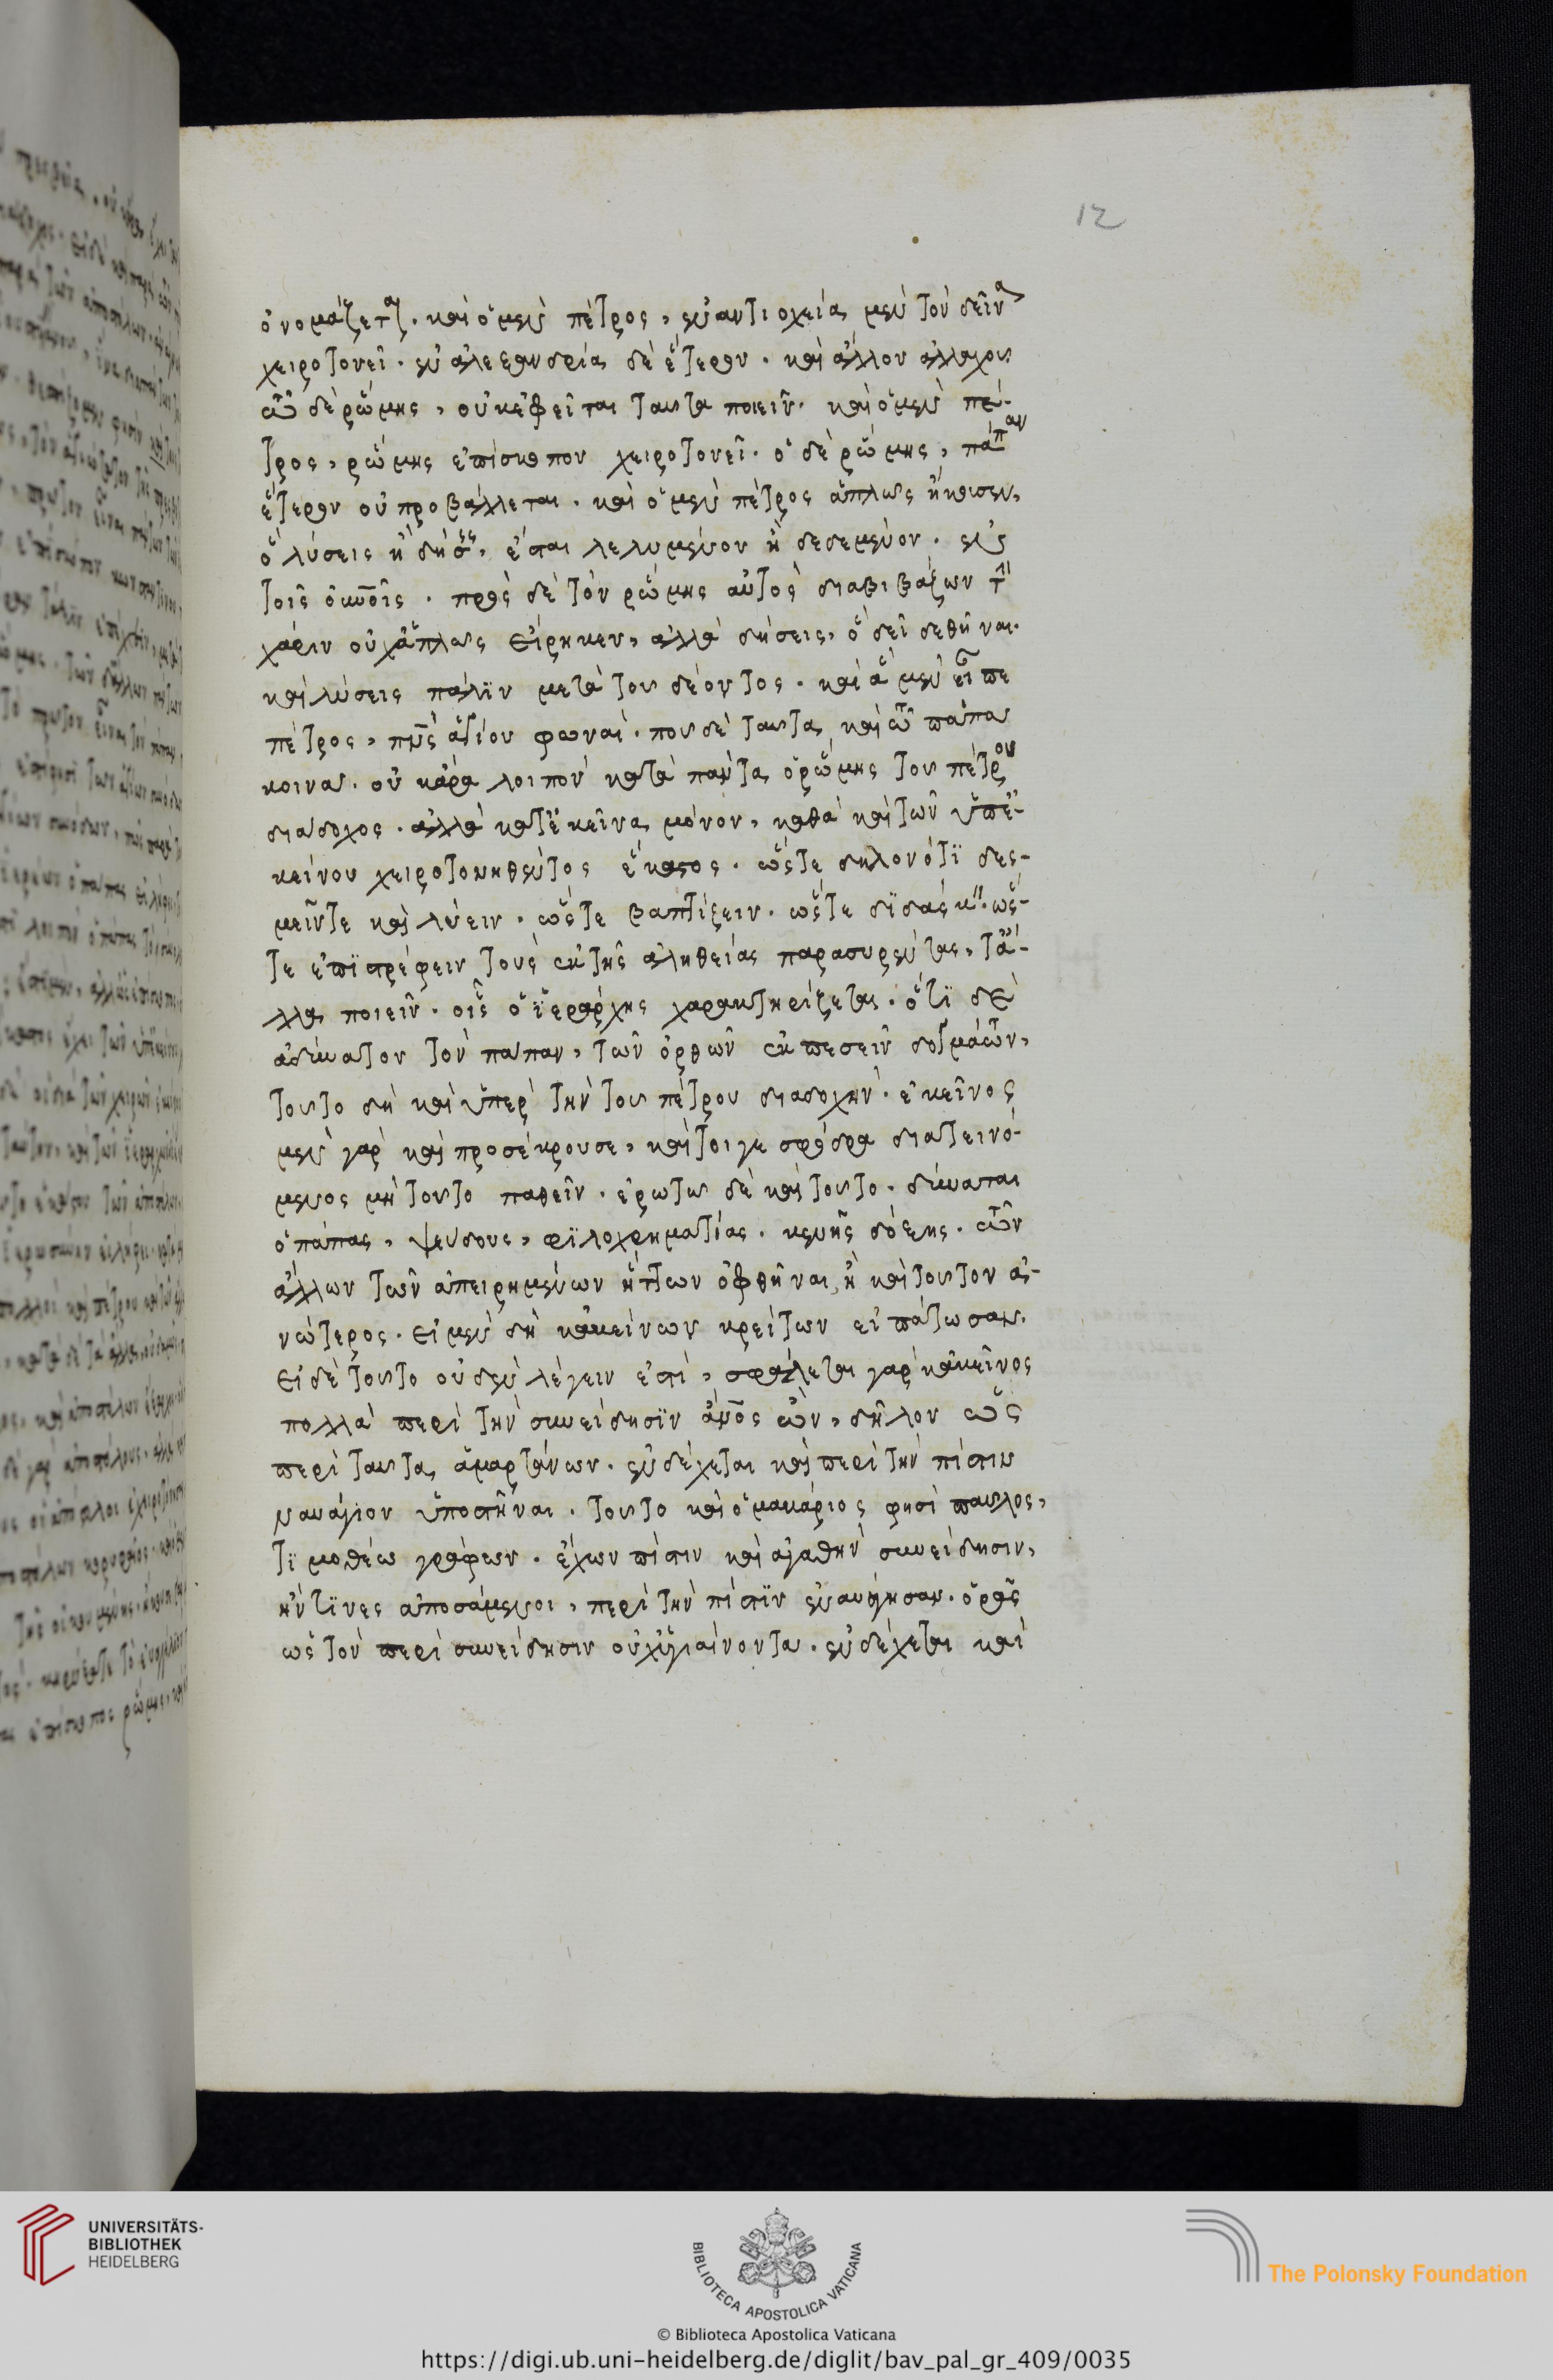 12
ὀνομάζεται. καὶ ὁ μὲν πέτρος, ἐν ἀντιοχεία μὲν τὸν δεῖνα
χειροτονεῖ. ἐν ἀλεξανδρία δὲ ἕτερον. καὶ ἄλλον ἀλλαχοῦ
τῶ δὲ ῥώμης, οὐκ ἐφεῖται ταῦτα ποιεῖν. καὶ ὁ μὲν πέ-
τρος, ῥώμης ἐπίσκοπον χειροτονεῖ. ὁ δὲ ῥώμης, πάπαν
ἕτερον οὐ προβάλλεται. καὶ ὁ μὲν πέτρος ἁπλῶς ἤκουσεν,
ὃ λύσεις ἢ δήσεις, ἔσται λελυμένον ἢ δεδεμένον. ἐν
τοῖς οὐνοῖς. πρὸς δὲ τὸν ῥώμης αὐτὸς διαβιβάζων τὴν
χάριν οὐχἁπλῶς εἴρηκεν, ἀλλὰ δήσεις, ὃ δεῖ δεθῆναι.
καὶ λύσεις πάλϊν μετὰ τοῦ δέοντος. καὶ ἃ μὲν εἶπε
πέτρος, πνς ἁγίου φωναί. ποῦ δὲ ταῦτα καὶ τῶ πάπα
κοινά. οὐκ ἄρα λοιπὸν κατὰ πάντα ὁ ῥώμης τοῦ πέτρου
διάδοχος. ἀλλὰ κατ' ἐκεῖνα μόνον, καθὰ καὶ τῶν ὑπ' ἐ-
κείνου χειροτονηθέντος ἕκαστος. ὥστε δηλονότϊ δεσ-
μεῖν τε καὶ λύειν. ὥστε βαπτίζειν. ὥστε διδάσκειν. ὥσ-
τε ἐπϊστρέφειν τοὺς ἐκ τῆς ἀληθείας παρασυρέντας, τἄ-
λλα ποιεῖν. οἷς ὁ ἱεράρχης χαρακτηρίζεται. ὅτϊ δὲ
ἀδύνατον τὸν πάπαν, τῶν ὀρθῶν ἐκπεσεῖν δογμάτων,
τοῦτο δὴ καὶ ὑπὲρ τὴν τοῦ πέτρου διαδοχήν. ἐκεῖνος
μὲν γὰρ καὶ προσέκρουσε, καί τοι γε σφόδρα διατεινό-
μενος μὴ τοῦτο παθεῖν. ἐρωτῶ δὲ καὶ τοῦτο. δύναται
ὁ πάπας, ψεύδους, φϊλοχρηματίας. κενῆς δόξης. τῶν
ἄλλων τῶν ἀπειρημένων ἥττων ὀφθῆναι, ἢ καὶ τούτον ἀ-
νώτερος. εἰ μὲν δὴ κἀκείνων κρείττων εἰπάτωσαν.
εἰ δὲ τοῦτο οὐδὲν λέγειν ἐστὶ, σφάλεται γὰρ κἀκεῖνος
πολλὰ περὶ τὴν συνείδησϊν ἄνος ὢν, δῆλον ὡς
περὶ ταῦτα ἁμαρτάνων. ἐνδέχεται καὶ περὶ τὴν πίστιν
ναυάγιον ὑποστῆναι. τοῦτο καὶ ὁ μακάριος φησὶ παῦλος,
τϊμοθέω γράφων. ἔχων πίστιν καὶ ἀγαθὴν συνείδησιν,
ἥν τϊνες ἀπωσάμενοι, περὶ τὴν πίστϊν ἐναυάγησαν. ὁρᾶς
ὡς τὸν περὶ συνείδησιν οὐχὑγιαίνοντα. ἐνδέχεται καὶ
UNIVERSITÄTS-
BIBLIOTHEK
HEIDELBERG
BIBLIOTECA APOSTOLICA VATICANA
The Polonsky Foundation
© Biblioteca Apostolica Vaticana
https://digi.ub.uni-heidelberg.de/diglit/bav_pal_gr_409/0035